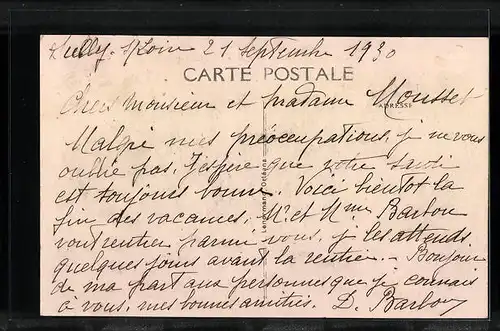 Sully s/Loire 21 Septembre 1930
CARTE POSTALE
Chers Monsieur et Madame Mousset
ADRESSE
Malgré mes préoccupations, je ne vous
oublie pas, j'espère que votre santé
est toujours bonne. Voici bientôt la
fin des vacances, Mr et Mme Barbou
vont rentrer parmi vous, je les attends
quelques jours avant la rentrée. - Bonjour
de ma part aux personnes que je connais
à vous, mes bonnes amitiés. D. Barbou